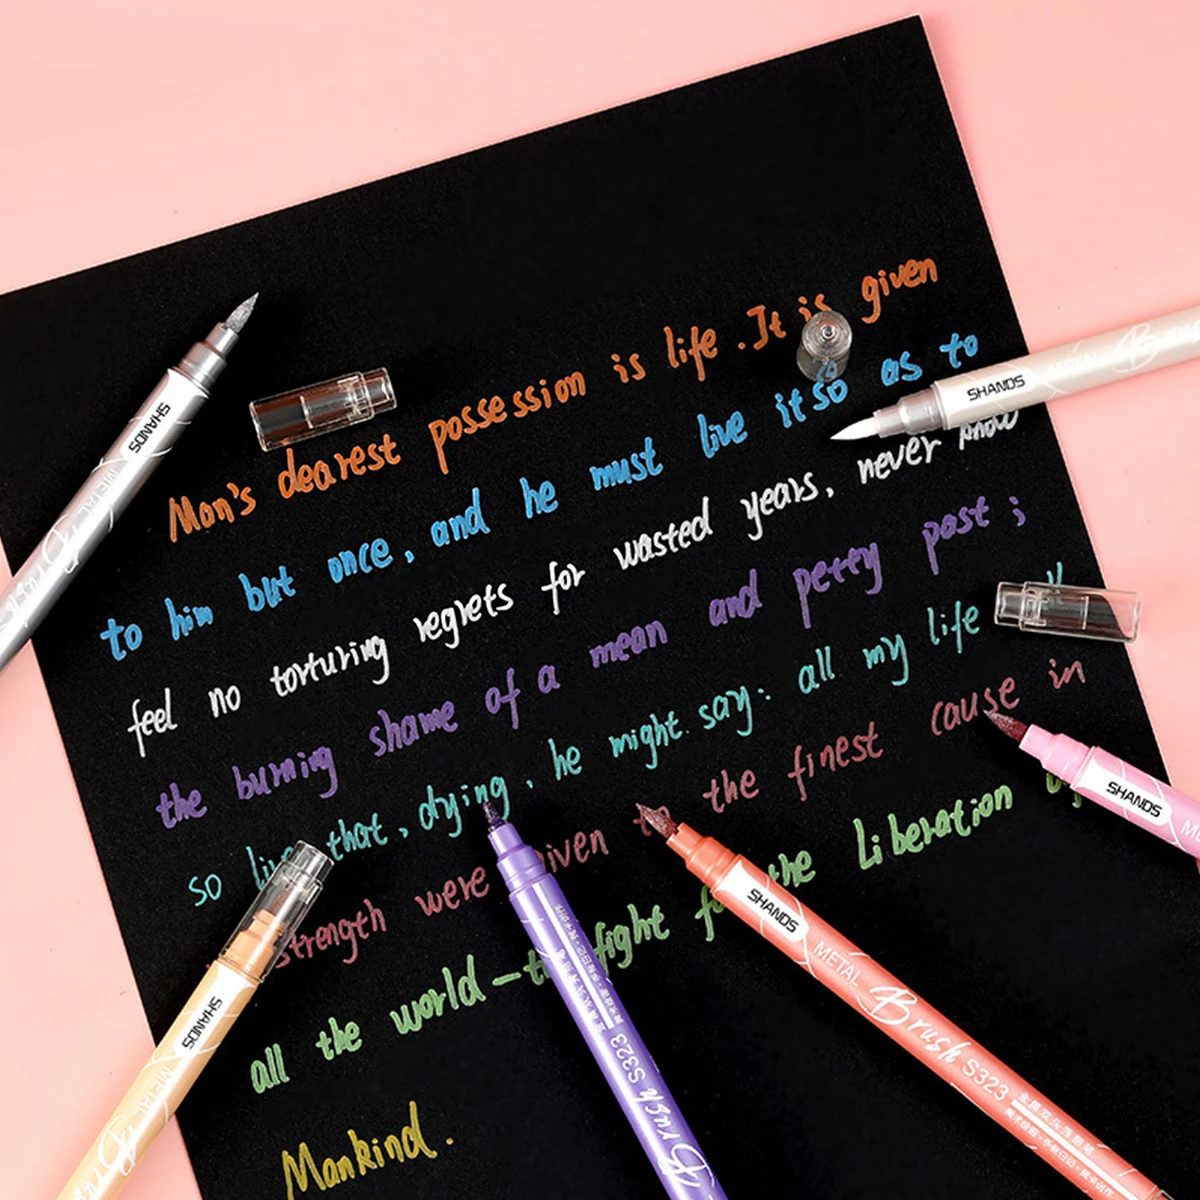 Man's dearest possession is life. It is given
to him but once, and he must live it so as to
feel no torturing regrets for wasted years, never know
the burning shame of a mean and petty past;
so live that, dying, he might say: all my life
strength were given to the finest cause in
all the world—the fight for the Liberation
Mankind.
SHANDS METAL Brush
SHANDS METAL Brush
SHANDS METAL
SHANDS METAL Brush S323
SHANDS METAL
Brush S323